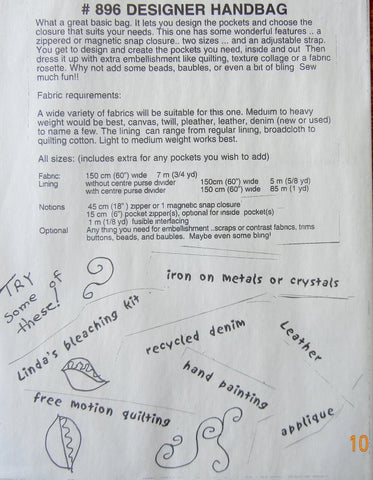 # 896 DESIGNER HANDBAG
What a great basic bag. It lets you design the pockets and choose the
closure that suits your needs. This one has some wonderful features .. a
zippered or magnetic snap closure.. two sizes ... and an adjustable strap.
You get to design and create the pockets you need, inside and out  Then
dress it up with extra embellishment like quilting, texture collage or a fabric
rosette. Why not add some beads, baubles, or even a bit of bling  Sew
much fun!!
Fabric requirements:
A wide variety of fabrics will be suitable for this one. Medium to heavy
weight would be best, canvas, twill, pleather, leather, denim (new or used)
to name a few. The lining  can range from regular lining, broadcloth to
quilting cotton. Light to medium weight works best.
All sizes: (includes extra for any pockets you wish to add)
Fabric: 150 cm (60") wide  .7 m (3/4 yd)
Lining without centre purse divider 150cm (60") wide .5 m (5/8 yd)
with centre purse divider 150 cm (60") wide .85 m (1 yd)
Notions 45 cm (18" ) zipper or 1 magnetic snap closure
15 cm (6") pocket zipper(s), optional for inside pocket(s)
1 m (1/8 yd) fusible interfacing
Optional Any thing you need for embellishment ..scraps or contrast fabrics, trims
buttons, beads, and baubles. Maybe even some bling!
TRY
Some of
these!
iron on metals or crystals
Linda's bleaching kit
recycled denim
Leather
hand painting
free motion quilting
applique
10